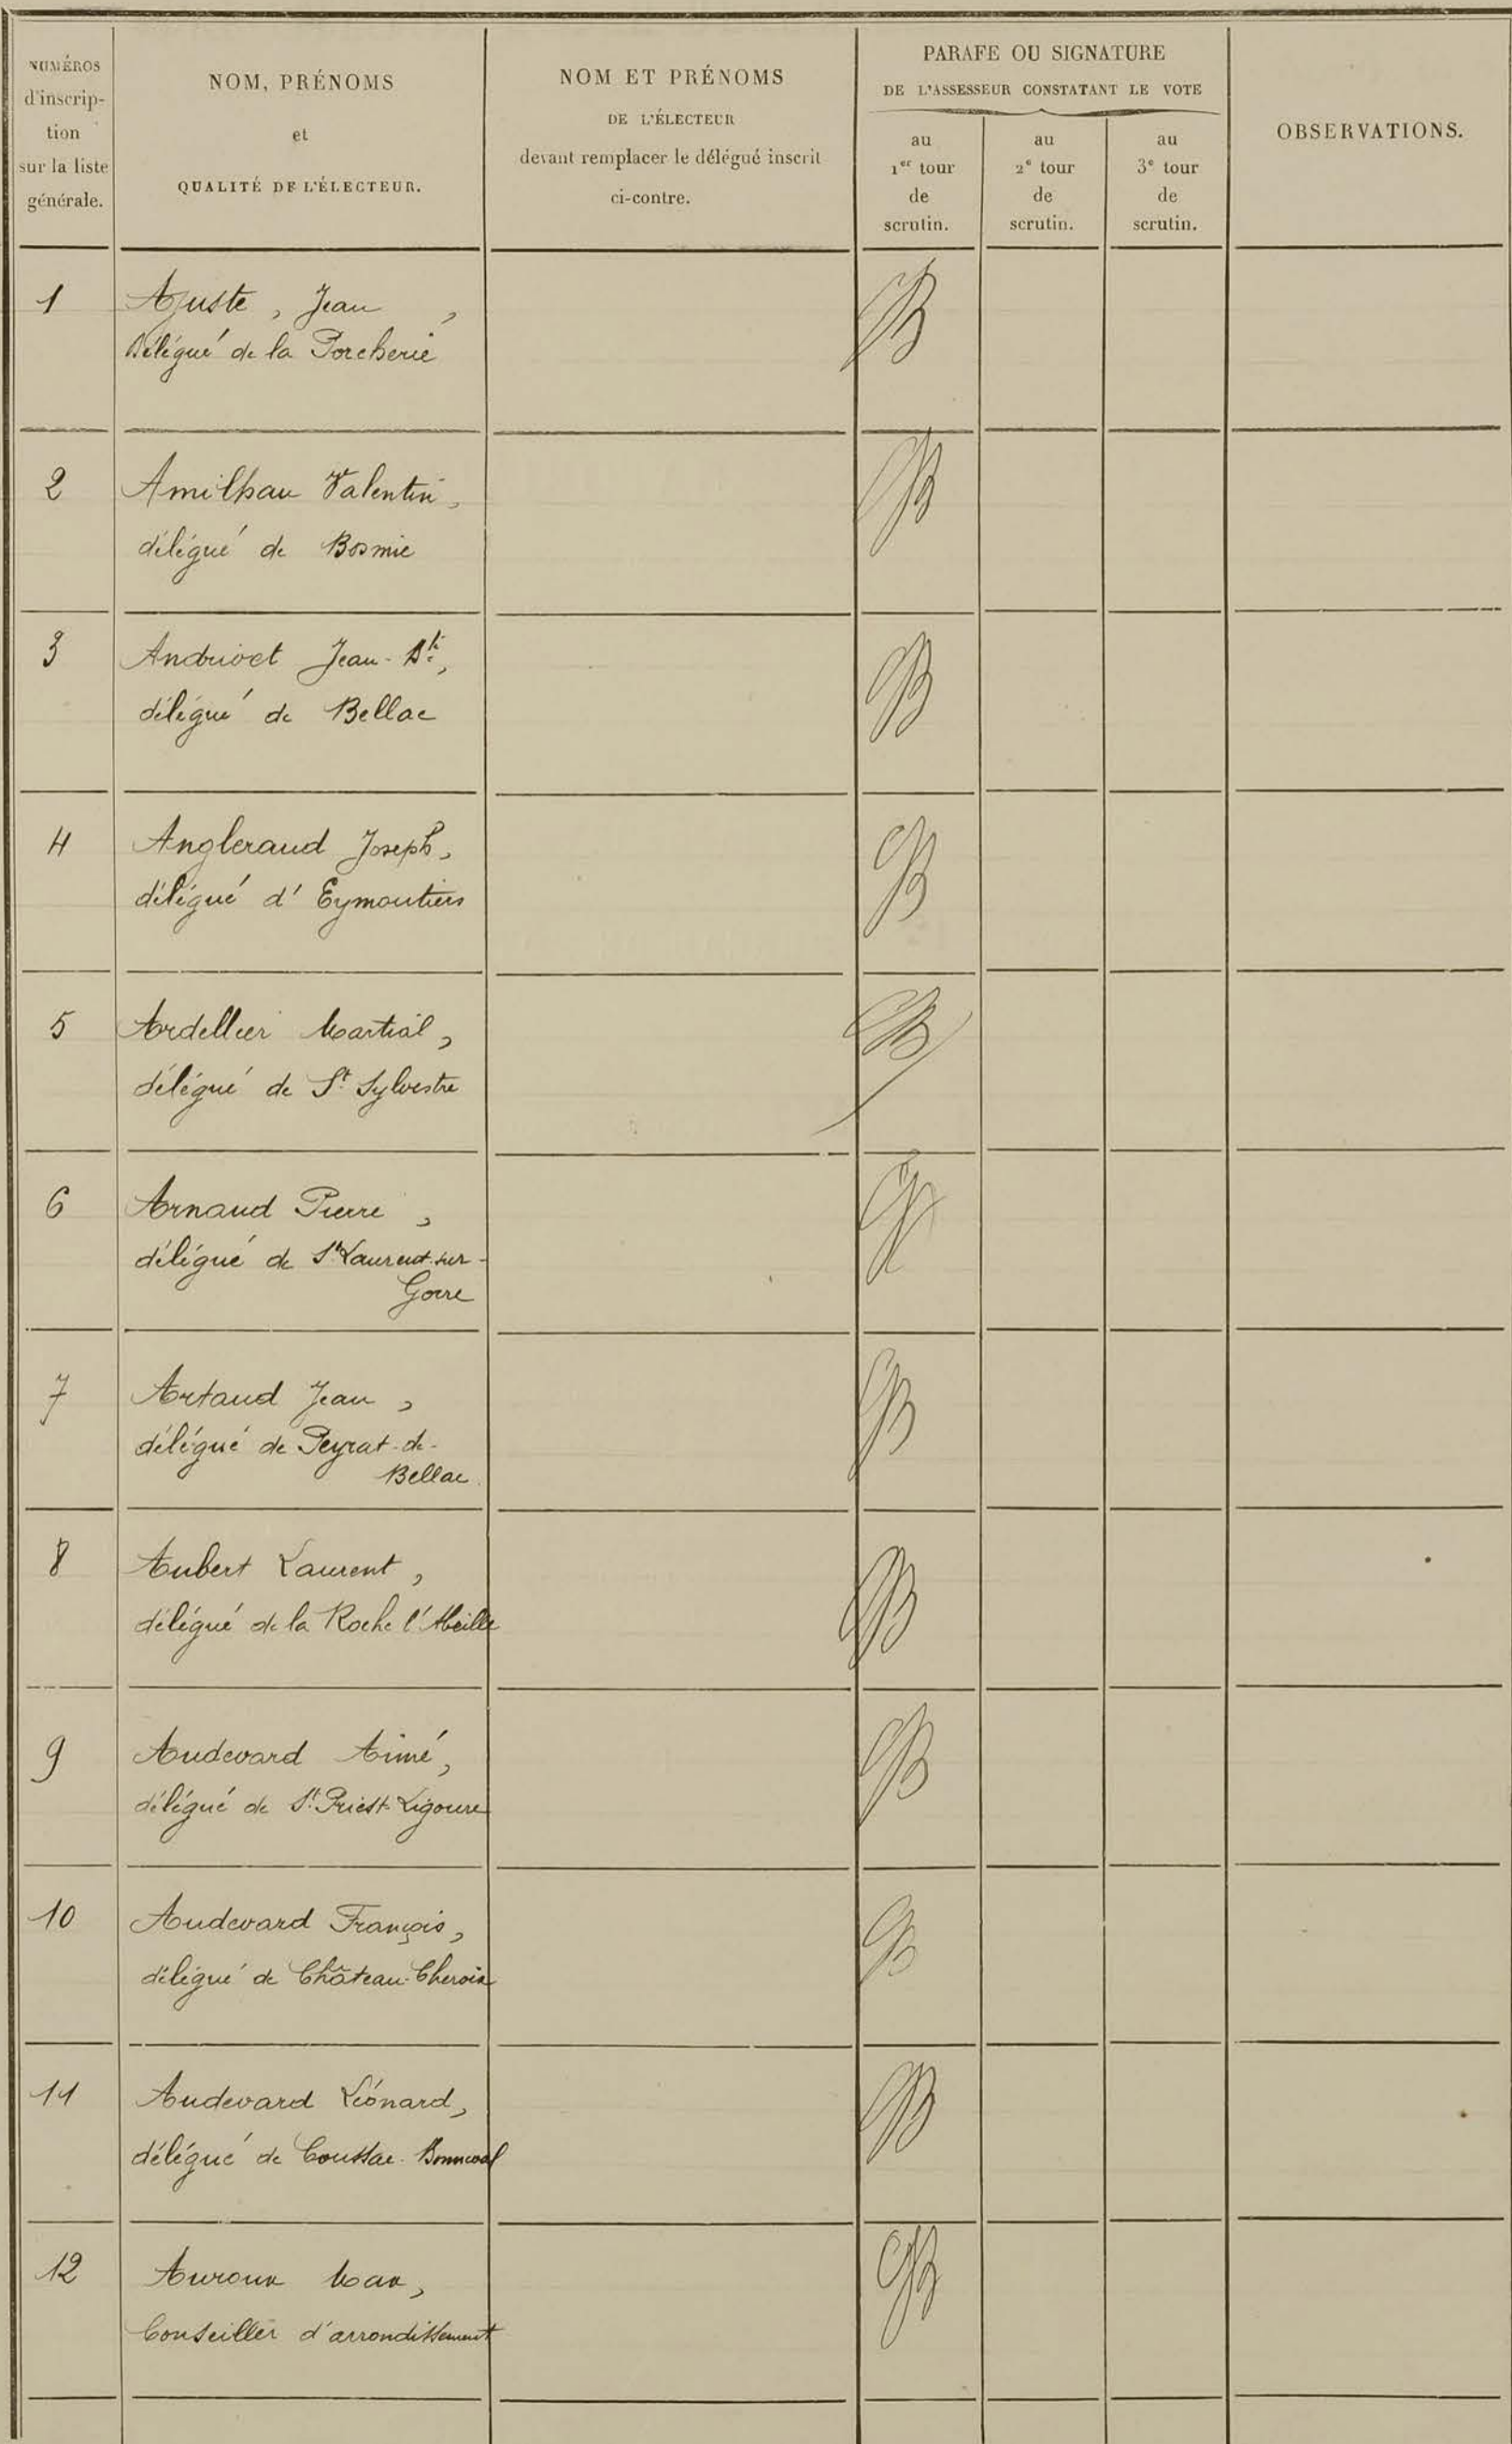 NUMÉROS
d'inscrip-
tion
sur la liste
générale.
NOM, PRÉNOMS
et
QUALITÉ DE L'ÉLECTEUR.
NOM ET PRÉNOMS
DE L'ÉLECTEUR
devant remplacer le délégué inscrit
ci-contre.
PARAFE OU SIGNATURE
DE L'ASSESSEUR CONSTATANT LE VOTE
au
1er tour
de
scrutin.
au
2e tour
de
scrutin.
au
3e tour
de
scrutin.
OBSERVATIONS.
1
Ajuste, Jean,
Délégué de la Porcherie
2
Amilhau Valentin,
délégué de Bosmie
3
Andrivet Jean-Bte,
délégué de Bellac
4
Angleraud Joseph,
délégué d'Eymoutiers
5
Ardellier Martial,
délégué de St Sylvestre
6
Arnaud Pierre,
délégué de St Laurent-sur-
Gorre
7
Artaud Jean,
délégué de Peyrat-de-
Bellac
8
Aubert Laurent,
délégué de la Roche l'Abeille
9
Audevard Aimé,
délégué de St Priest-Ligoure
10
Audevard François,
délégué de Château-Chervix
11
Audevard Léonard,
délégué de Coussac-Bonneval
12
Auroux Max,
Conseiller d'arrondissement